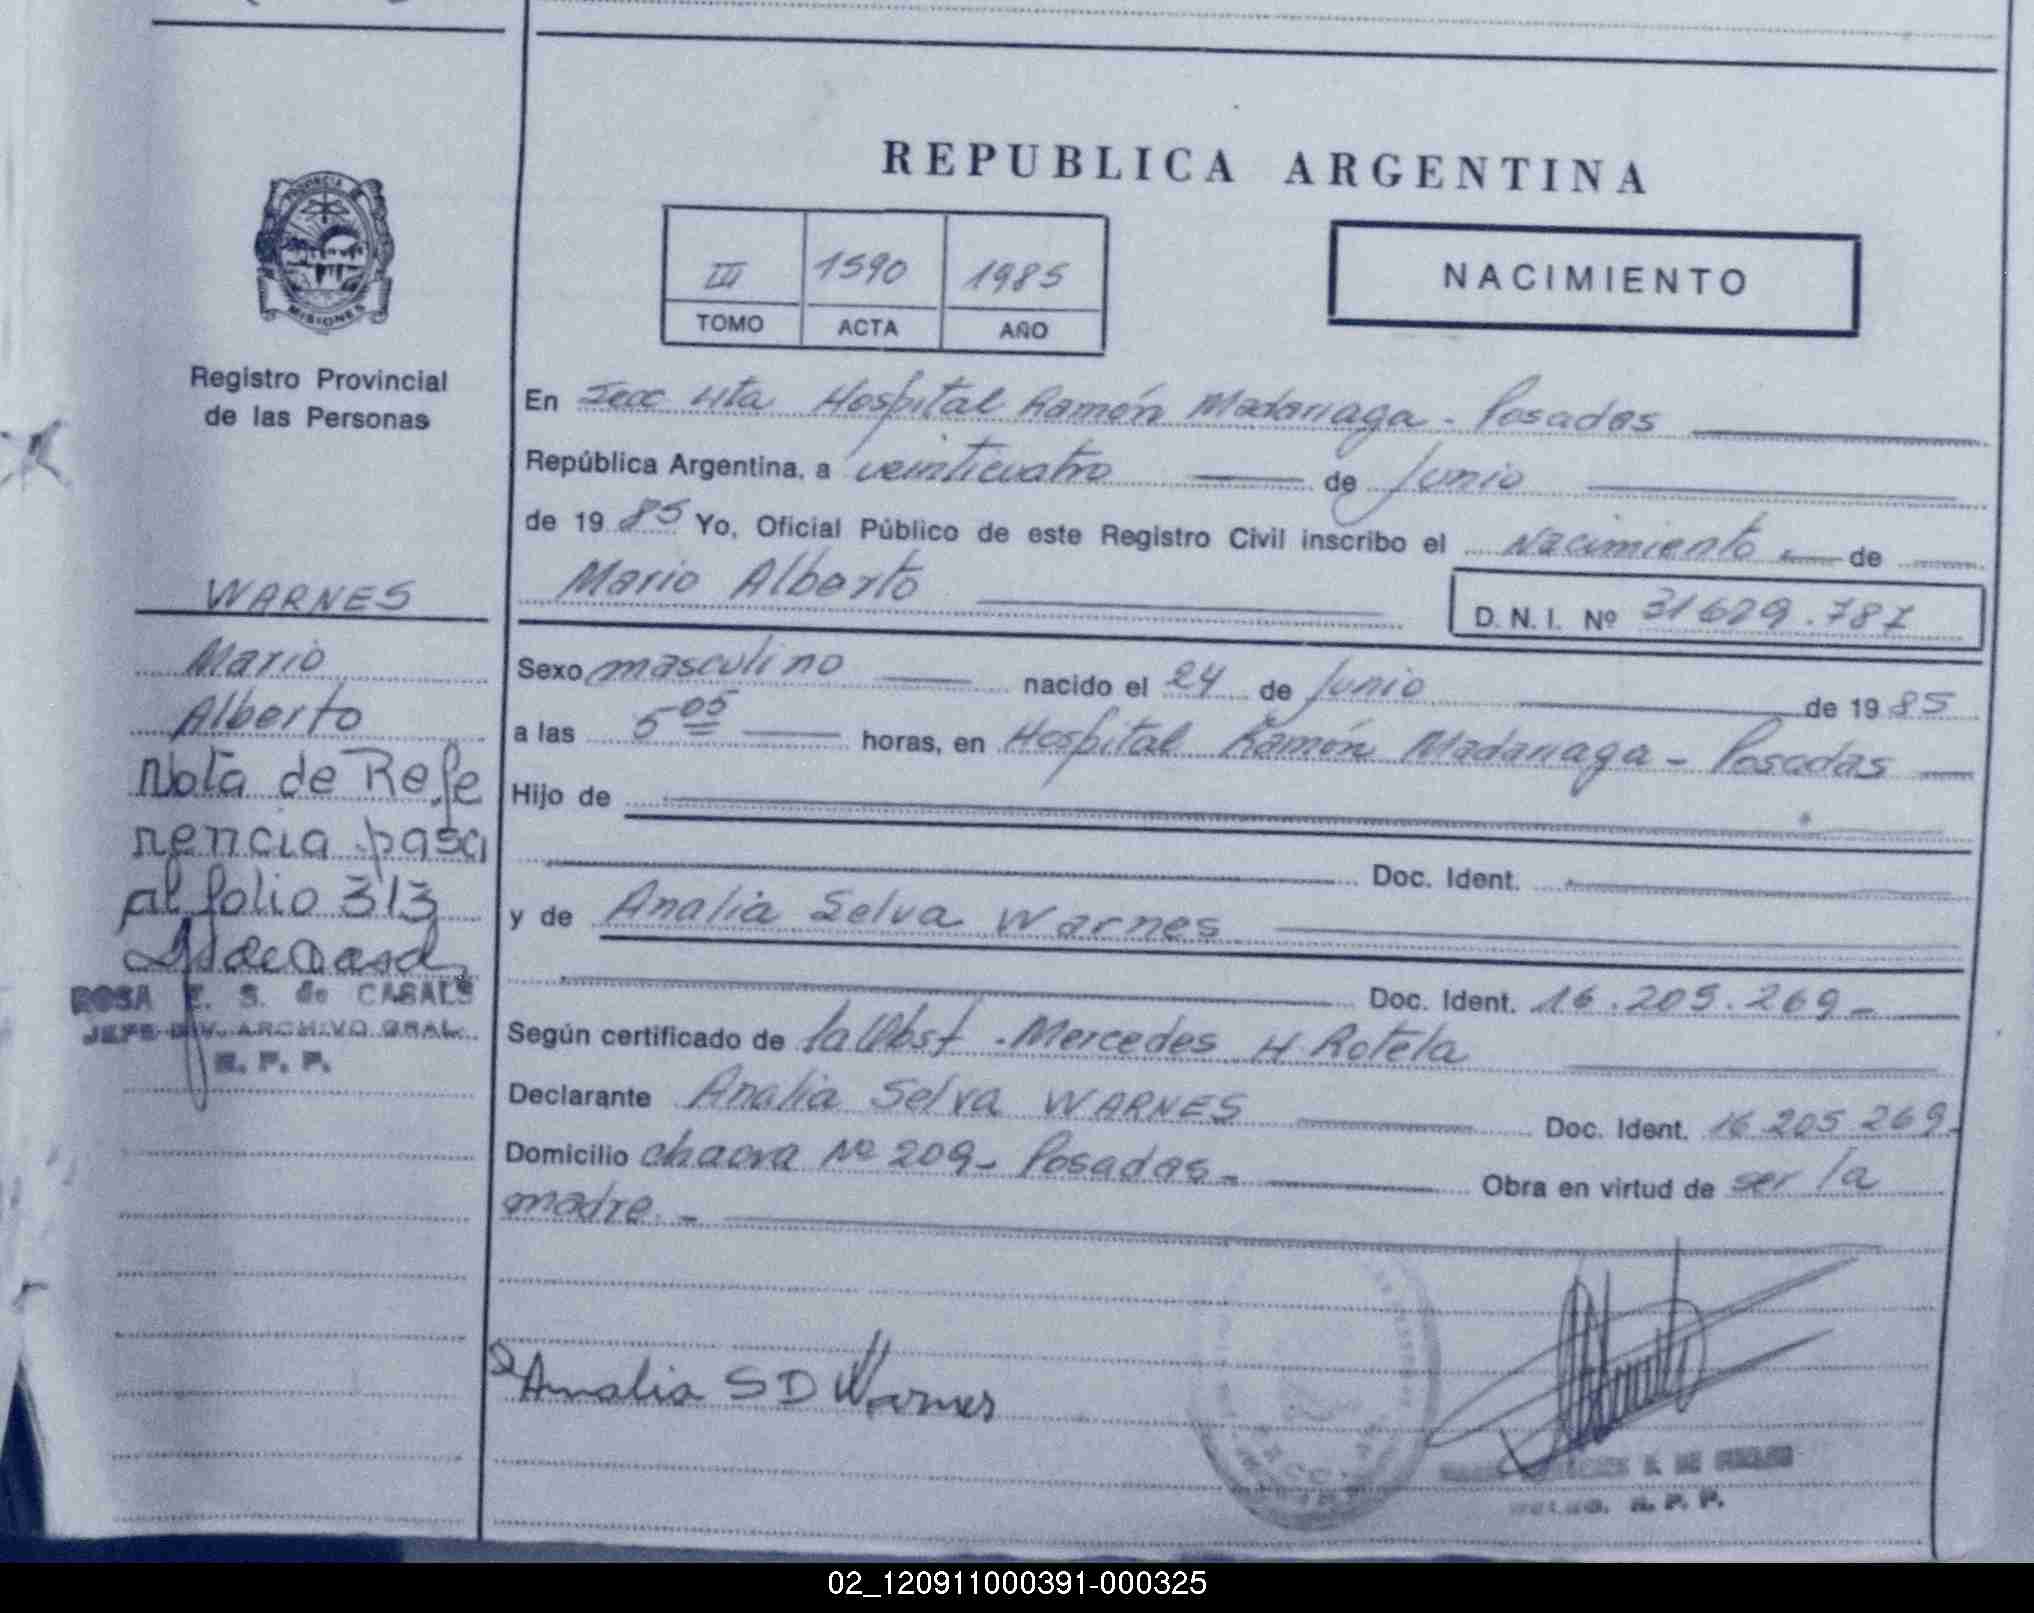 REPUBLICA ARGENTINA
PROVINCIA DE
MISIONES
Registro Provincial
de las Personas
III 1590 1985
TOMO ACTA AÑO
NACIMIENTO
En Secc 4ta Hospital Ramón Madariaga - Posadas
República Argentina, a veinticuatro de Junio
de 19 85 Yo, Oficial Público de este Registro Civil inscribo el Nacimiento de
Mario Alberto
D. N. I. Nº 31629.787
WARNES
Mario
Alberto
Nota de Refe
rencia pasa
al folio 313
ROSA E. S. de CASALS
JEFE DIV. ARCHIVO GRAL.
R. P. P.
Sexo masculino nacido el 24 de Junio de 19 85
a las 5 05 horas, en Hospital Ramón Madariaga - Posadas
Hijo de
Doc. Ident.
y de Analia Selva Warnes
Doc. Ident. 16.205.269-
Según certificado de la Obst. Mercedes H Rotela
Declarante Analia Selva WARNES Doc. Ident. 16 205 269-
Domicilio chacra Nº 209- Posadas- Obra en virtud de ser la
madre. -
Analia S D Warnes
R. P. P.
02_120911000391-000325